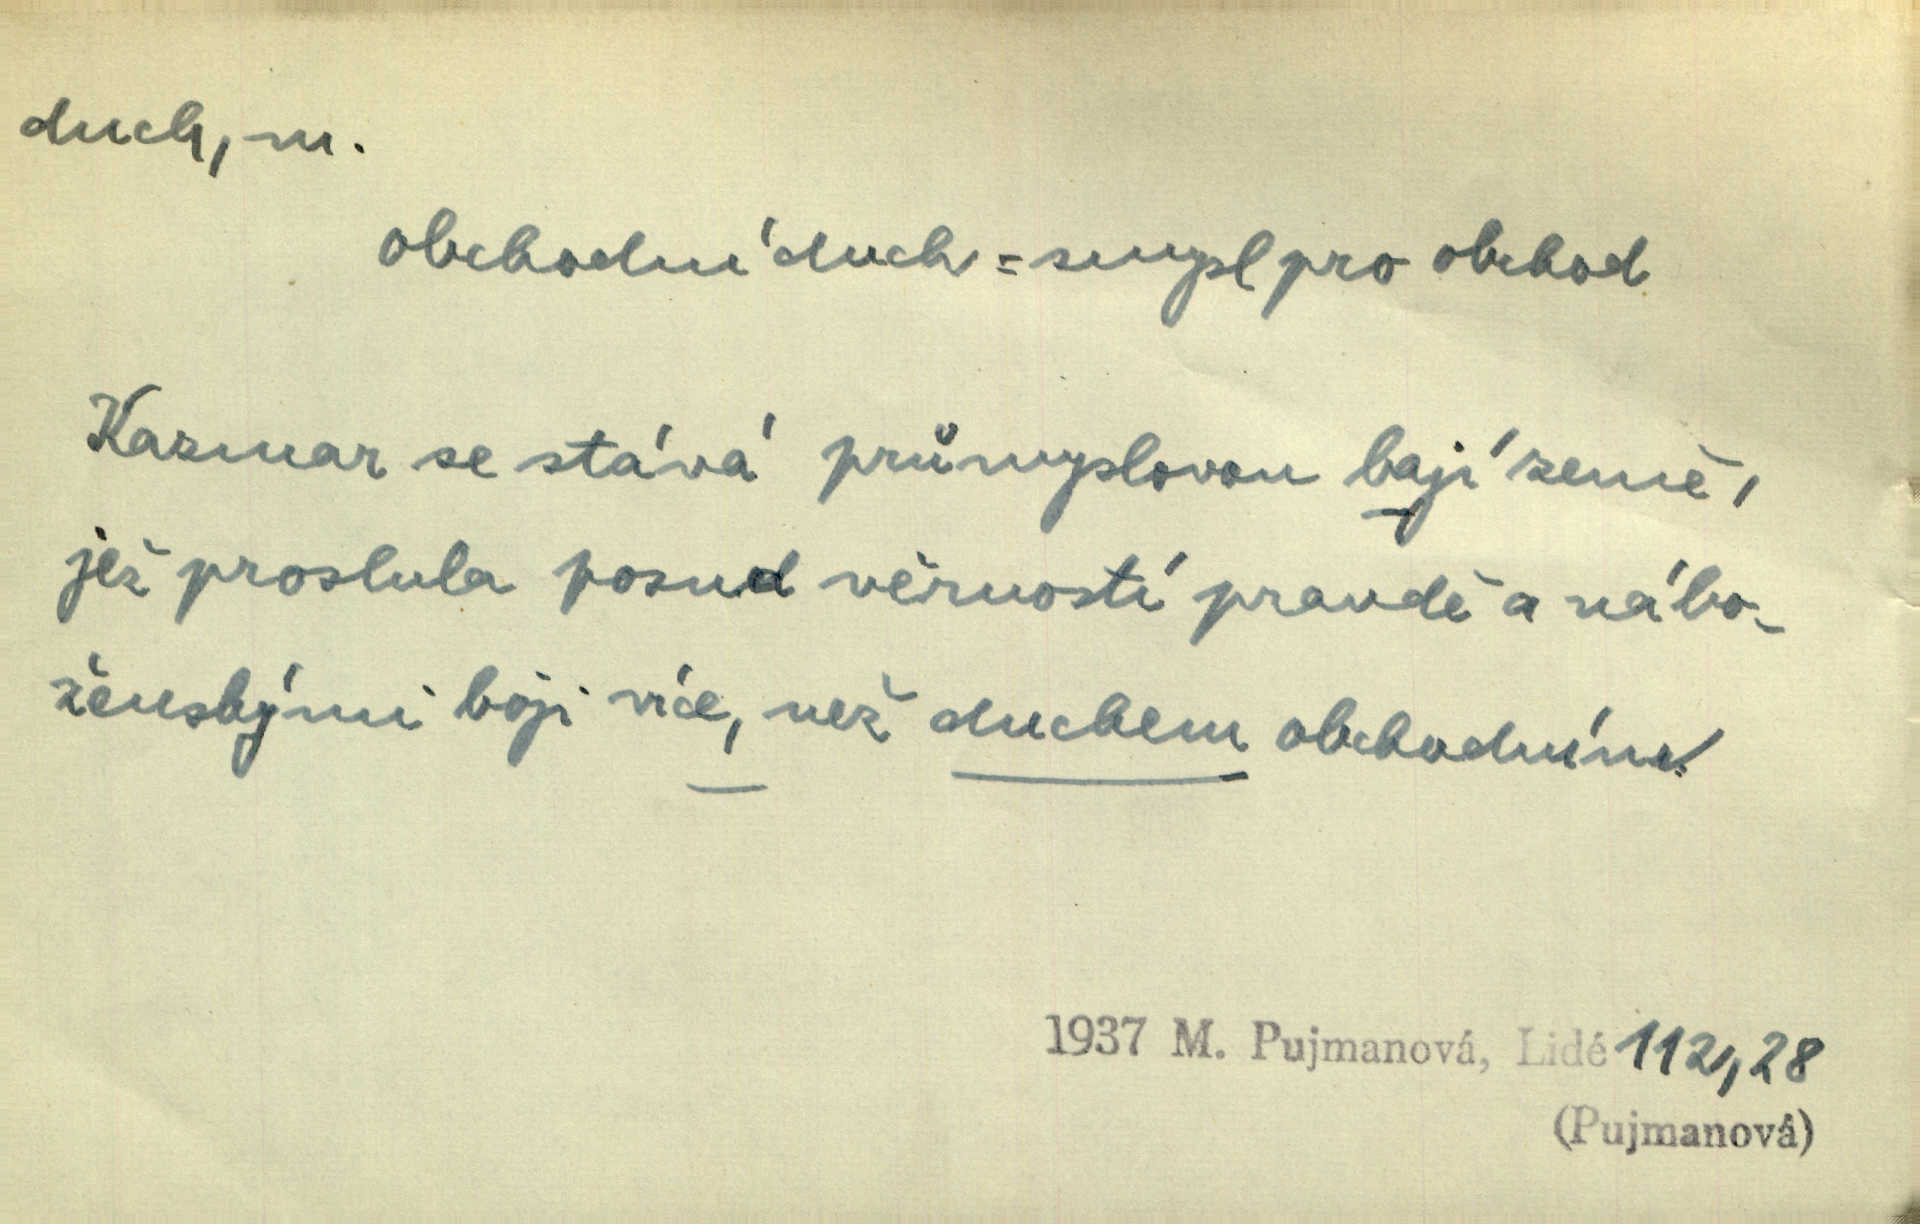 duch, m.
obchodní duch = smysl pro obchod
Kazmar se stává průmyslovou bájí země,
jež proslula posud věrností pravdě a nábo-
ženskými boji více, než duchem obchodním.
1937 M. Pujmanová, Lidé 112, 28
(Pujmanová)